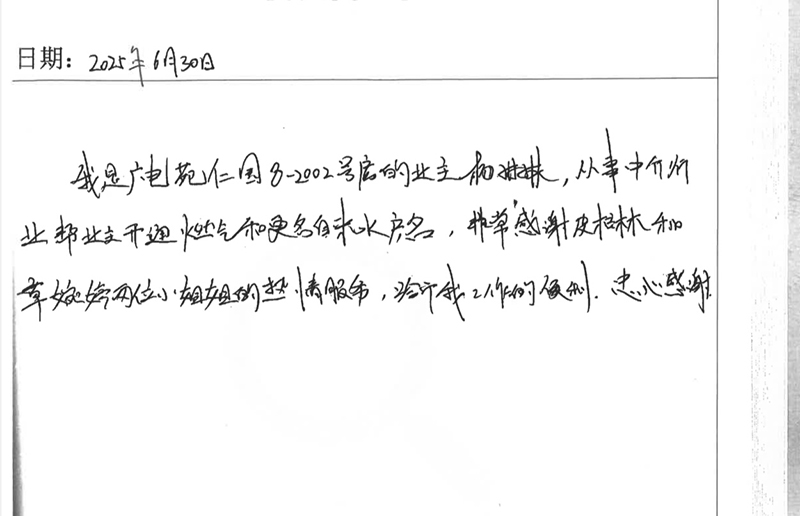 日期：2025年6月30日
我是广电苑仁园8-2002号房的业主杨姗姝，从事中介行
业帮业主开通燃气和更名自来水户名，非常感谢皮格林和
覃媛婷两位小姐姐的热情服务，给予我工作的便利．忠心感谢